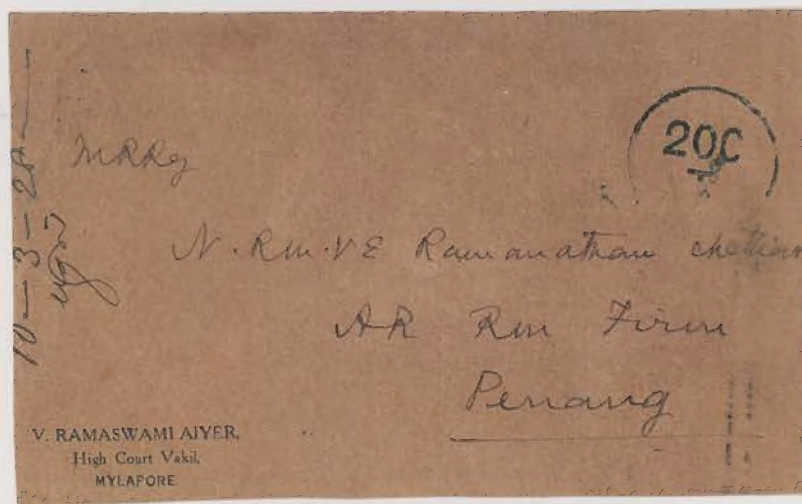 20C
MRRy
N. Rm. V E Ramanathan Chettiar
AR Rm Firm
Penang
10-3-28
V. RAMASWAMI AIYER,
High Court Vakil,
MYLAPORE.